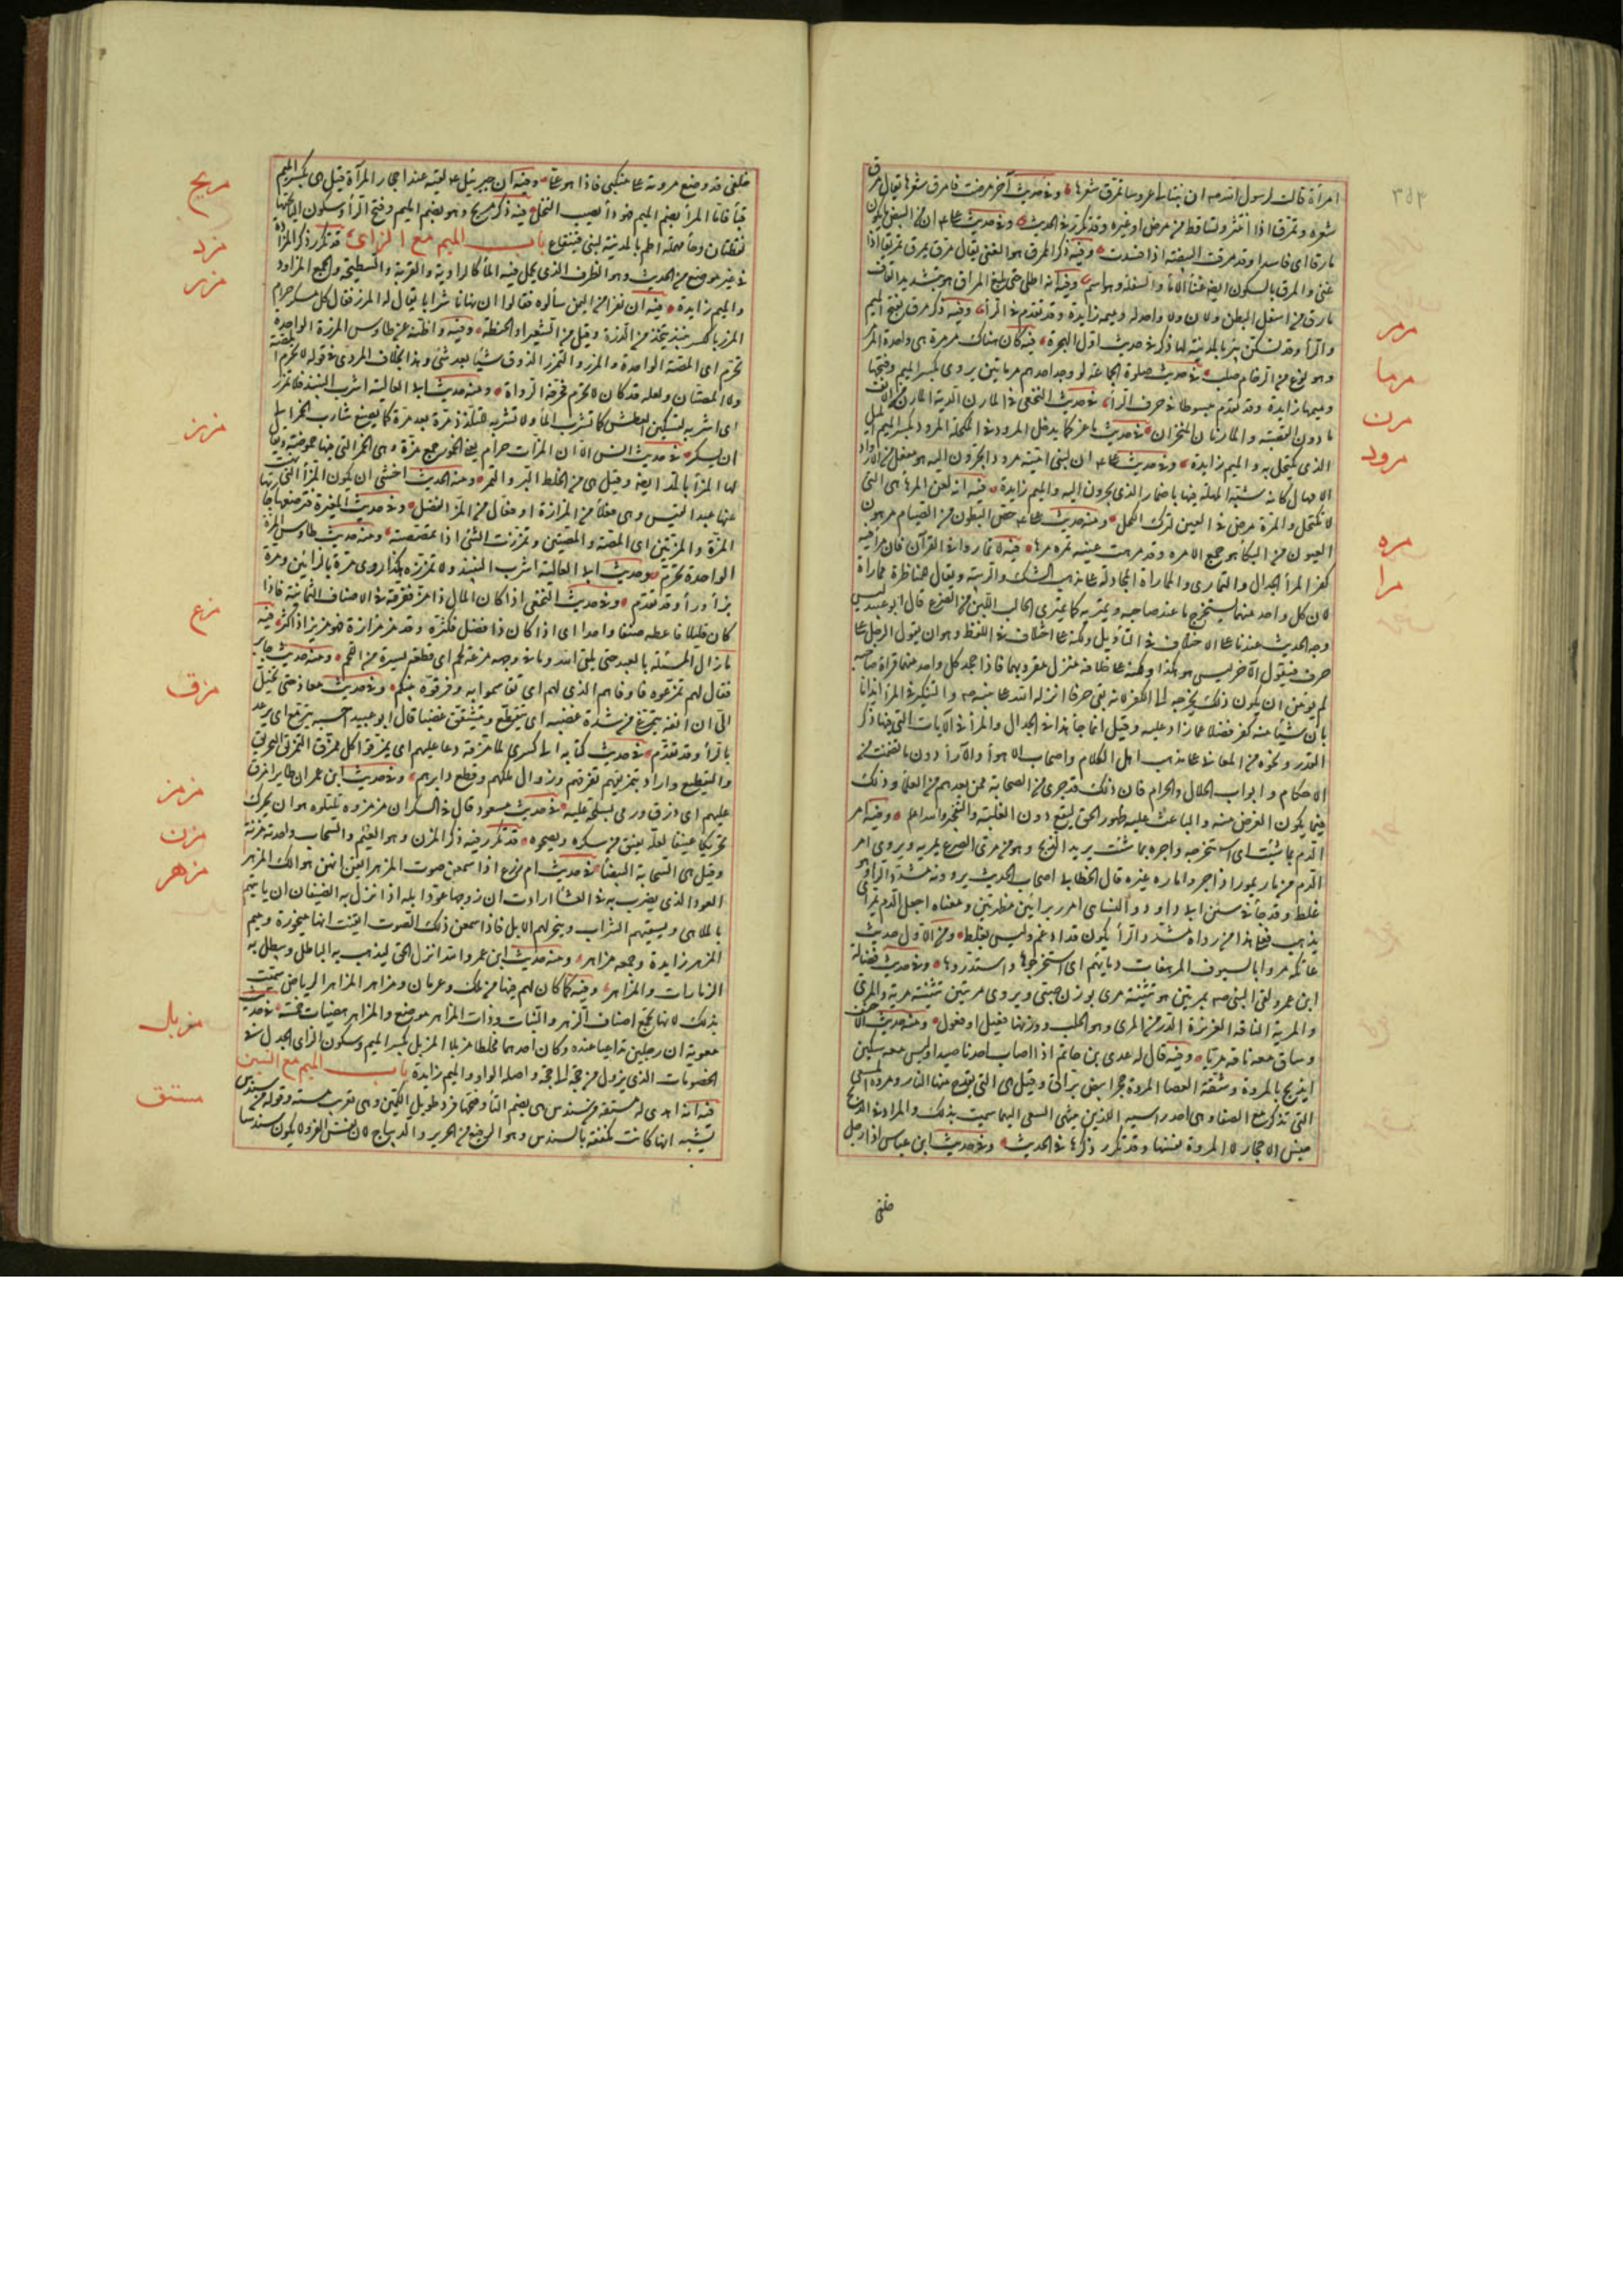 ٣٥٣
امرأة قالت لرسول الله ان بنتا لى عروسا تمرق شعرها وفى حديث آخر مرضت فامرق شعرها يقال مرق
شعره وتمرق اذا انتثر وتساقط من مرض او غيره وقد تكرر فى الحديث وفى حديث على ان من البيض ما يكون
مارقا اى فاسدا وقد مرقت البيضة اذا فسدت وفيه ذكر المرق هو الغنى يقال مرق يمرق تمريقا اذا
غنى والمرق بالسكون ايضا غناء الاماء والسفلة وهو اسم وفيه انه اطلى حتى بلغ المراق هو بتشديد القاف
مارق من اسفل البطن ولان ولا واحد له وميمه زايدة وقد تقدم فى الرأء وفيه ذكر مرقان بفتح الميم
مرمر
وهو نوع من الرخام صلب فى حديث صلوة الجماعة لو وجد احدهم مرماتين يروى بكسر الميم وفتحها
مرما
وميمها زايدة وقد تقدم مبسوطا فى حرف الرأء فى حديث النخعى فى المارن الدية المارن من الانف
مرن
ما دون القصبة والمارنان المنخران فى حديث ماعز كما يدخل المرود فى المكحلة المرود بكسر الميم الميل
مرود
الذى يكتحل به والميم زايدة وفى حديث على ان لبنى امية مرودا يجرون اليه هو مفعل من الارواد
الامهال كانه شبه المهلة فيها بالمضمار الذى يجرون اليه والميم زايدة فيه انه لعن المرهاء هى التى
مره
لا تكتحل والمره مرض فى العين لترك الكحل ومنه حديث على خمص البطون من الصيام مره
العيون من البكاء هو جمع الامره وقد مرهت عينه تمره مرها فيه لا تماروا فى القرآن فان مراء فيه
مرا
كفر المراء الجدال والتمارى والمماراة المجادلة على مذهب الشك والريبة ويقال للمناظرة مماراة
لان كل واحد منهما يستخرج ما عند صاحبه ويمتريه كما يمترى الحالب اللبن من الضرع قال ابو عبيد ليس
وجه الحديث عندنا على الاختلاف فى التأويل ولكنه على اختلاف فى اللفظ وهو ان يقول الرجل على
حرف فيقول الآخر ليس هو هكذا ولكنه على خلافه منزل مقرو بهما فاذا جحد كل واحد منهما قراة صاحبه
لم يؤمن ان يكون ذلك يخرجه الى الكفر لانه نفى حرفا انزله الله على نبيه والتنكير فى المراء ايذانا
بان شيئا منه كفر فضلا عما زاد عليه وقيل انما جاء هذا فى الجدال والمراء فى الآيات التى فيها ذكر
القدر ونحوه من المعانى على مذهب اهل الكلام واصحاب الاهواء والآراء دون ما تضمنت من
الاحكام وابواب الحلال والحرام فان ذلك قد جرى من الصحابة فمن بعدهم من العلماء وذلك
فيما يكون الغرض منه والباعث عليه ظهور الحق ليتبع دون الغلبة والتعجيز والله اعلم وفيه امر
الدم بما شئت اى استخرجه واجره بما شئت يريد الذبح وهو من مرى الضرع يمريه ويروى امر
الدم من مار يمور اذا جرى واماره غيره قال الخطابى اصحاب الحديث يروونه مشدد الرأء وهو
غلط وقد جاء فى سنن ابى داود والنسائى امرر برأئين مظهرتين ومعناه اجعل الدم يمر اى
يذهب فعلى هذا من رواه مشدد الرأء يكون قد ادغم وليس بغلط ومن الاول حديث
عاتكة مروا بالسيوف المرهفات دماءهم اى استخرجوها واستدروها وفى حديث نضلة
ابن عمرو لقى النبى بمريين هو تثنية مرى بوزن صبى ويروى مريتين تثنية مرية والمرى
والمرية الناقة الغزيرة الدر من المرى وهو الحلب ووزنها فعيل او فعول ومنه حديث الاحنف
وساق معه ناقة مريا وفيه قال له عدى بن حاتم اذا اصاب احدنا صيدا وليس معه سكين
ايذبح بالمروة وشقة العصا المروة حجر ابيض براق وقيل هى التى يقدح منها النار ومروة المسعى
التى تذكر مع الصفا وهى احد رأسيه اللذين ينتهى السعى اليهما سميت بذلك والمراد فى الذبح
جنس الاحجار لا المروة نفسها وقد تكرر ذكرها فى الحديث وفى حديث ابن عباس اذا رجل
خلفى
خلفى قد وضع مروته على منكبى فاذا هو على وفيه ان جبرئيل لقيه عند احجار المرآء قيل هى بكسر الميم
مريح
قبأ فاما المرأ بضم الميم فهو داء يصيب النخل فيه ذكر مريح وهو بضم الميم وفتح الرأ وسكون اليأ تحتها
نقطتان وحأ مهملة اطم بالمدينة لبنى قينقاع باب الميم مع الزاى قد تكرر ذكر المزادة
مزد
فى غير موضع من الحديث وهو الظرف الذى يحمل فيه المأ كالراوية والقربة والسطيحة والجمع المزاود
مزر
والميم زايدة فيه ان نفرا من اليمن سألوه فقالوا ان بها شرابا يقال له المزر فقال كل مسكر حرام
المزر بالكسر نبيذ يتخذ من الذرة وقيل من الشعير او الحنطة وفيه واظنه عن طاوس المزرة الواحدة
تحرم اى المصة الواحدة والمزر والتمزر الذوق شيئا بعد شئ وهذا بخلاف المروى فى قوله لا تحرم المصة
ولا المصتان ولعله قد كان لا تحرم فحرفه الرواة ومنه حديث ابى العالية اشرب النبيذ فلا تمزر
اى اشربه لتسكين العطش كما تشرب المأ ولا تشربه للتلذذ مرة بعد مرة كما يصنع شارب الخمر الى
مزز
ان يسكر فى حديث انس الا ان المزات حرام يعنى الخمور جمع مزة وهى الخمر التى فيها حموضة ويقال
لها المزأ بالمد ايضا وقيل هى من الخلط البسر والتمر ومنه الحديث اخشى ان يكون المزأ التى نهيت
عنها عبد القيس وهى فعلاء من المزازة او فعال من المز الفضل وفى حديث المغيرة فترضعها جارتها
المزة والمزتين اى المصة والمصتين وتمززت الشئ اذا تمصصته ومنه حديث طاوس المزة
الواحدة تحرم وحديث ابى العالية اشرب النبيذ ولا تمززه هكذا روى مرة بالزائين ومرة
بزأ ورأ وقد تقدم وفى حديث النخعى اذا كان المال ذا مز ففرقه فى الاصناف الثمانية فاذا
كان قليلا فاعطه صنفا واحدا اى اذا كان ذا فضل وكثرة وقد مز مزازة فهو مزيز اذا كثر فيه
مزع
مازال المسئلة بالعبد حتى يلقى الله وما فى وجهه مزعة لحم اى قطعة يسيرة من اللحم ومنه حديث جابر
فقال لهم تمزعوه فاوفاهم الذى لهم اى تقاسموا به وفرقوه بينكم وفى حديث معاذ حتى تخيل
الى ان انفه يتمزع من شدة غضبه اى يتقطع ويتشقق غضبا قال ابو عبيد احسبه يترمع اى يرعد
مزق
بالرأ وقد تقدم فى حديث كتابه الى كسرى لما مزقه دعا عليهم اى يمزقوا كل ممزق التمزيق التخريق
والتقطيع واراد بتمزيقهم تفرقهم وزوال ملكهم وقطع دابرهم وفى حديث ابن عمر ان طايرا مزق
مزمز
عليهم اى ذرق ورمى بسلحه عليه فى حديث مسعود قال فى السكران مزمزوه تلتلوه هو ان يحرك
مزن
تحريكا عنيفا لعله يفيق من سكره ويصحو قد تكرر فيه ذكر المزن وهو الغيم والسحاب واحدته مزنة
مزهر
وقيل هى السحابة البيضأ فى حديث ام زرع اذا سمعن صوت المزهر ايقن انهن هوالك المزهر
العود الذى يضرب به فى الغنأ ارادت ان زوجها عود ابله اذا نزل به الضيفان ان ياتيهم
بالملاهى ويسقيهم الشراب وينحر لهم الابل فاذا سمعن ذلك الصوت ايقنت انها منحورة وميم
المزهر زايدة وجمعه مزاهر ومنه حديث ابن عمرو ان الله انزل الحق ليذهب به الباطل ويبطل به
الزمارات والمزاهر وفيه فما كان لهم فيها من ملك وعرمان ومزاهر المزاهر الرياض سميت
بذلك لانها تجمع اصناف الزهر والنبات وذات المزاهر موضع والمزاهر هضبات حمر فى حديث
مزيل
معوية ان رجلين تداعيا عنده وكان احدهما مخلطا مزيلا المزيل بكسر الميم وسكون الزاى الجدل فى
الخصومات الذى يزول من حجة الى حجة واصلها الواو والميم زايدة باب الميم مع السين
مستق
فيه انه اهدى له مستقة من سندس هى بضم التأ وفتحها فرو طويل الكمين وهى تعريب مشته وقوله من سندس
يشبه انها كانت مكففة بالسندس وهو الرفيع من الحرير والديباج لان نفس الفرو لا يكون سندسا